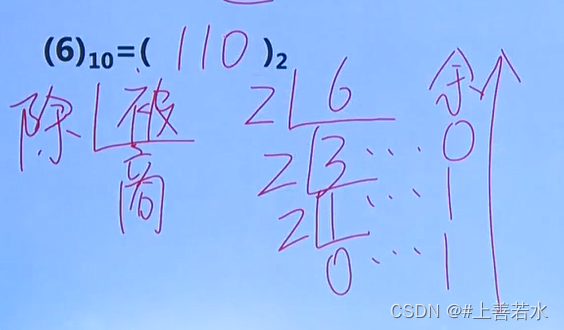 (6)₁₀=( 110 )₂
除 被
商
2 6 余
2 3 … 0
2 1 … 1
0 … 1
CSDN @#上善若水